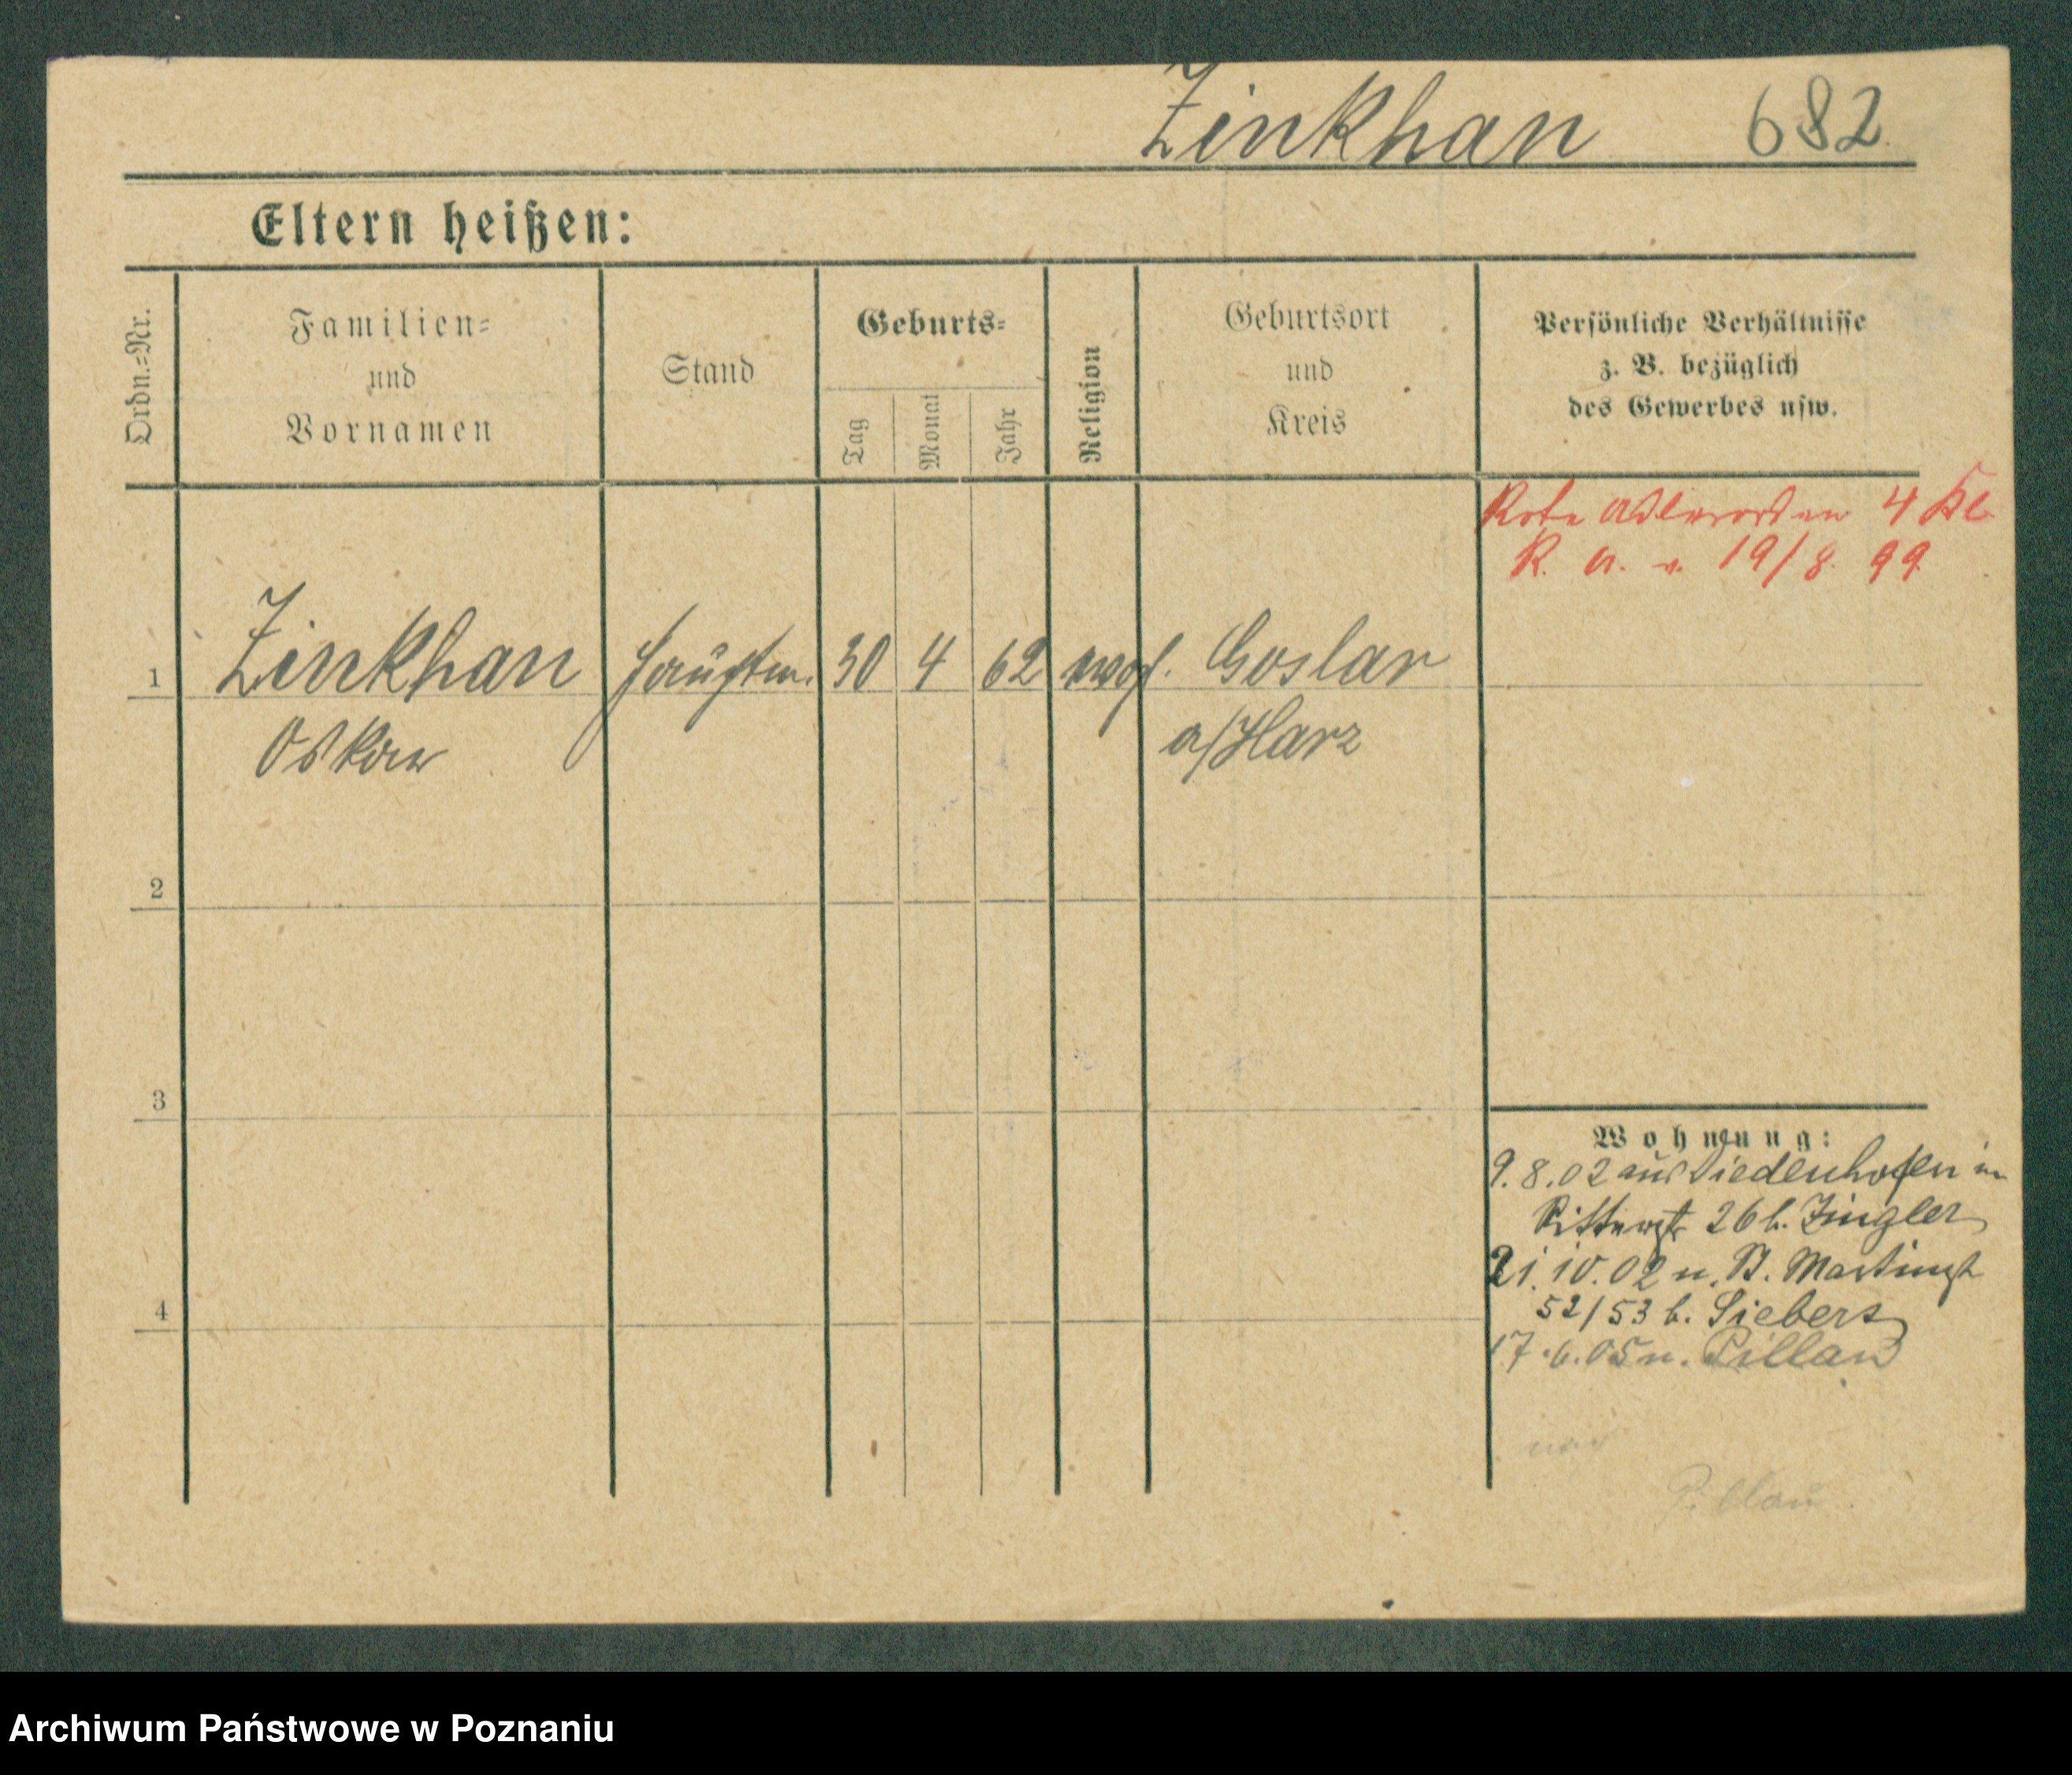 Zinkhan 682
Eltern heißen:
Ordn.=Nr.
Familien=
und
Vornamen
Stand
Geburts=
Tag
Monat
Jahr
Religion
Geburtsort
und
Kreis
Persönliche Verhältnisse
z. B. bezüglich
des Gewerbes usw.
Rote Adlerorden 4 Kl
K. A. v. 19/8. 99.
1 Zinkhan Hauptm. 30 4 62 evgl. Goslar
Oskar a/Harz
2
3
4
Wohnung:
9.8.02 aus Diedenhofen in
Ritterstr 26 b. Zingler
21.10.02 n. St. Martinstr
52/53 b. Siebers
17.6.05 n. Pillau
Pillau
Archiwum Państwowe w Poznaniu